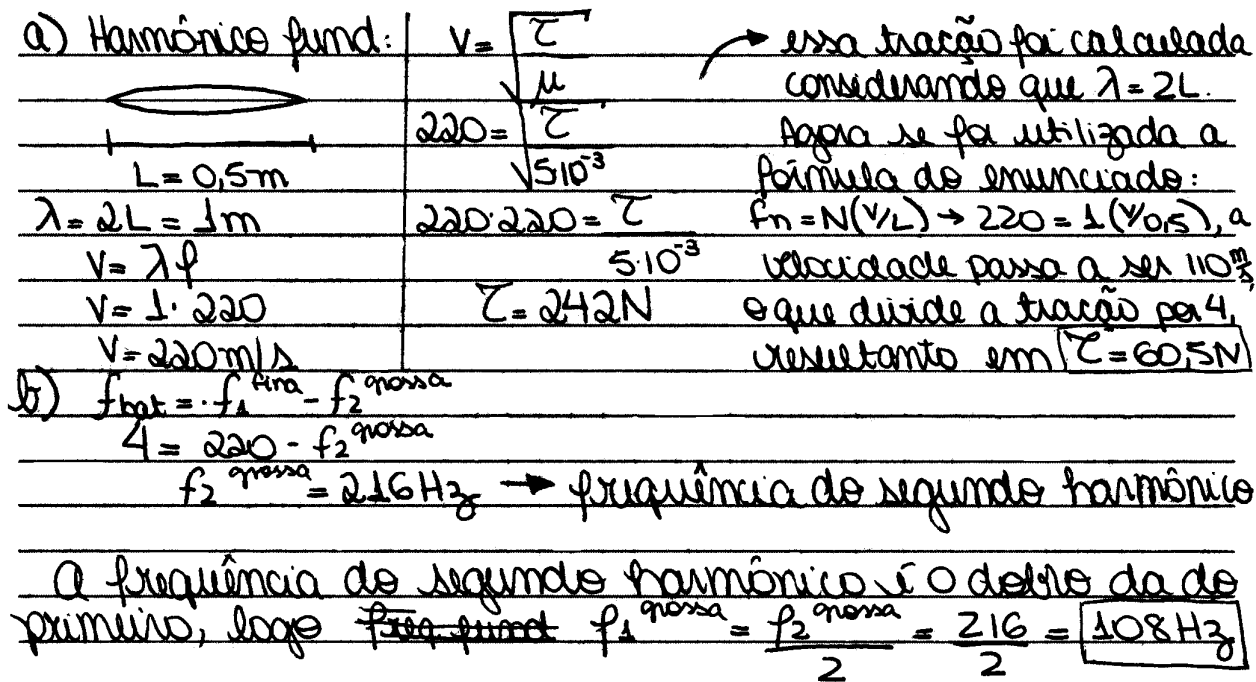 a) Harmônico fund:
L = 0,5m
λ = 2L = 1m
V = λf
V = 1 · 220
V = 220m/s
V = √(τ/μ)
220 = √(τ/5·10⁻³)
220·220 = τ/5·10⁻³
τ = 242N
→ essa tração foi calculada
considerando que λ = 2L.
Agora se for utilizada a
fórmula do enunciado:
fn = N(V/L) → 220 = 1(V/0,5), a
velocidade passa a ser 110 m/s,
o que divide a tração por 4,
resultanto em τ = 60,5N
b) fbat = f₁ᶠⁱⁿᵃ - f₂ᵍʳᵒˢˢᵃ
4 = 220 - f₂ᵍʳᵒˢˢᵃ
f₂ᵍʳᵒˢˢᵃ = 216Hz → frequência do segundo harmônico
A frequência do segundo harmônico é o dobro da do
primeiro, logo freq fund f₁ᵍʳᵒˢˢᵃ = f₂ᵍʳᵒˢˢᵃ/2 = 216/2 = 108Hz